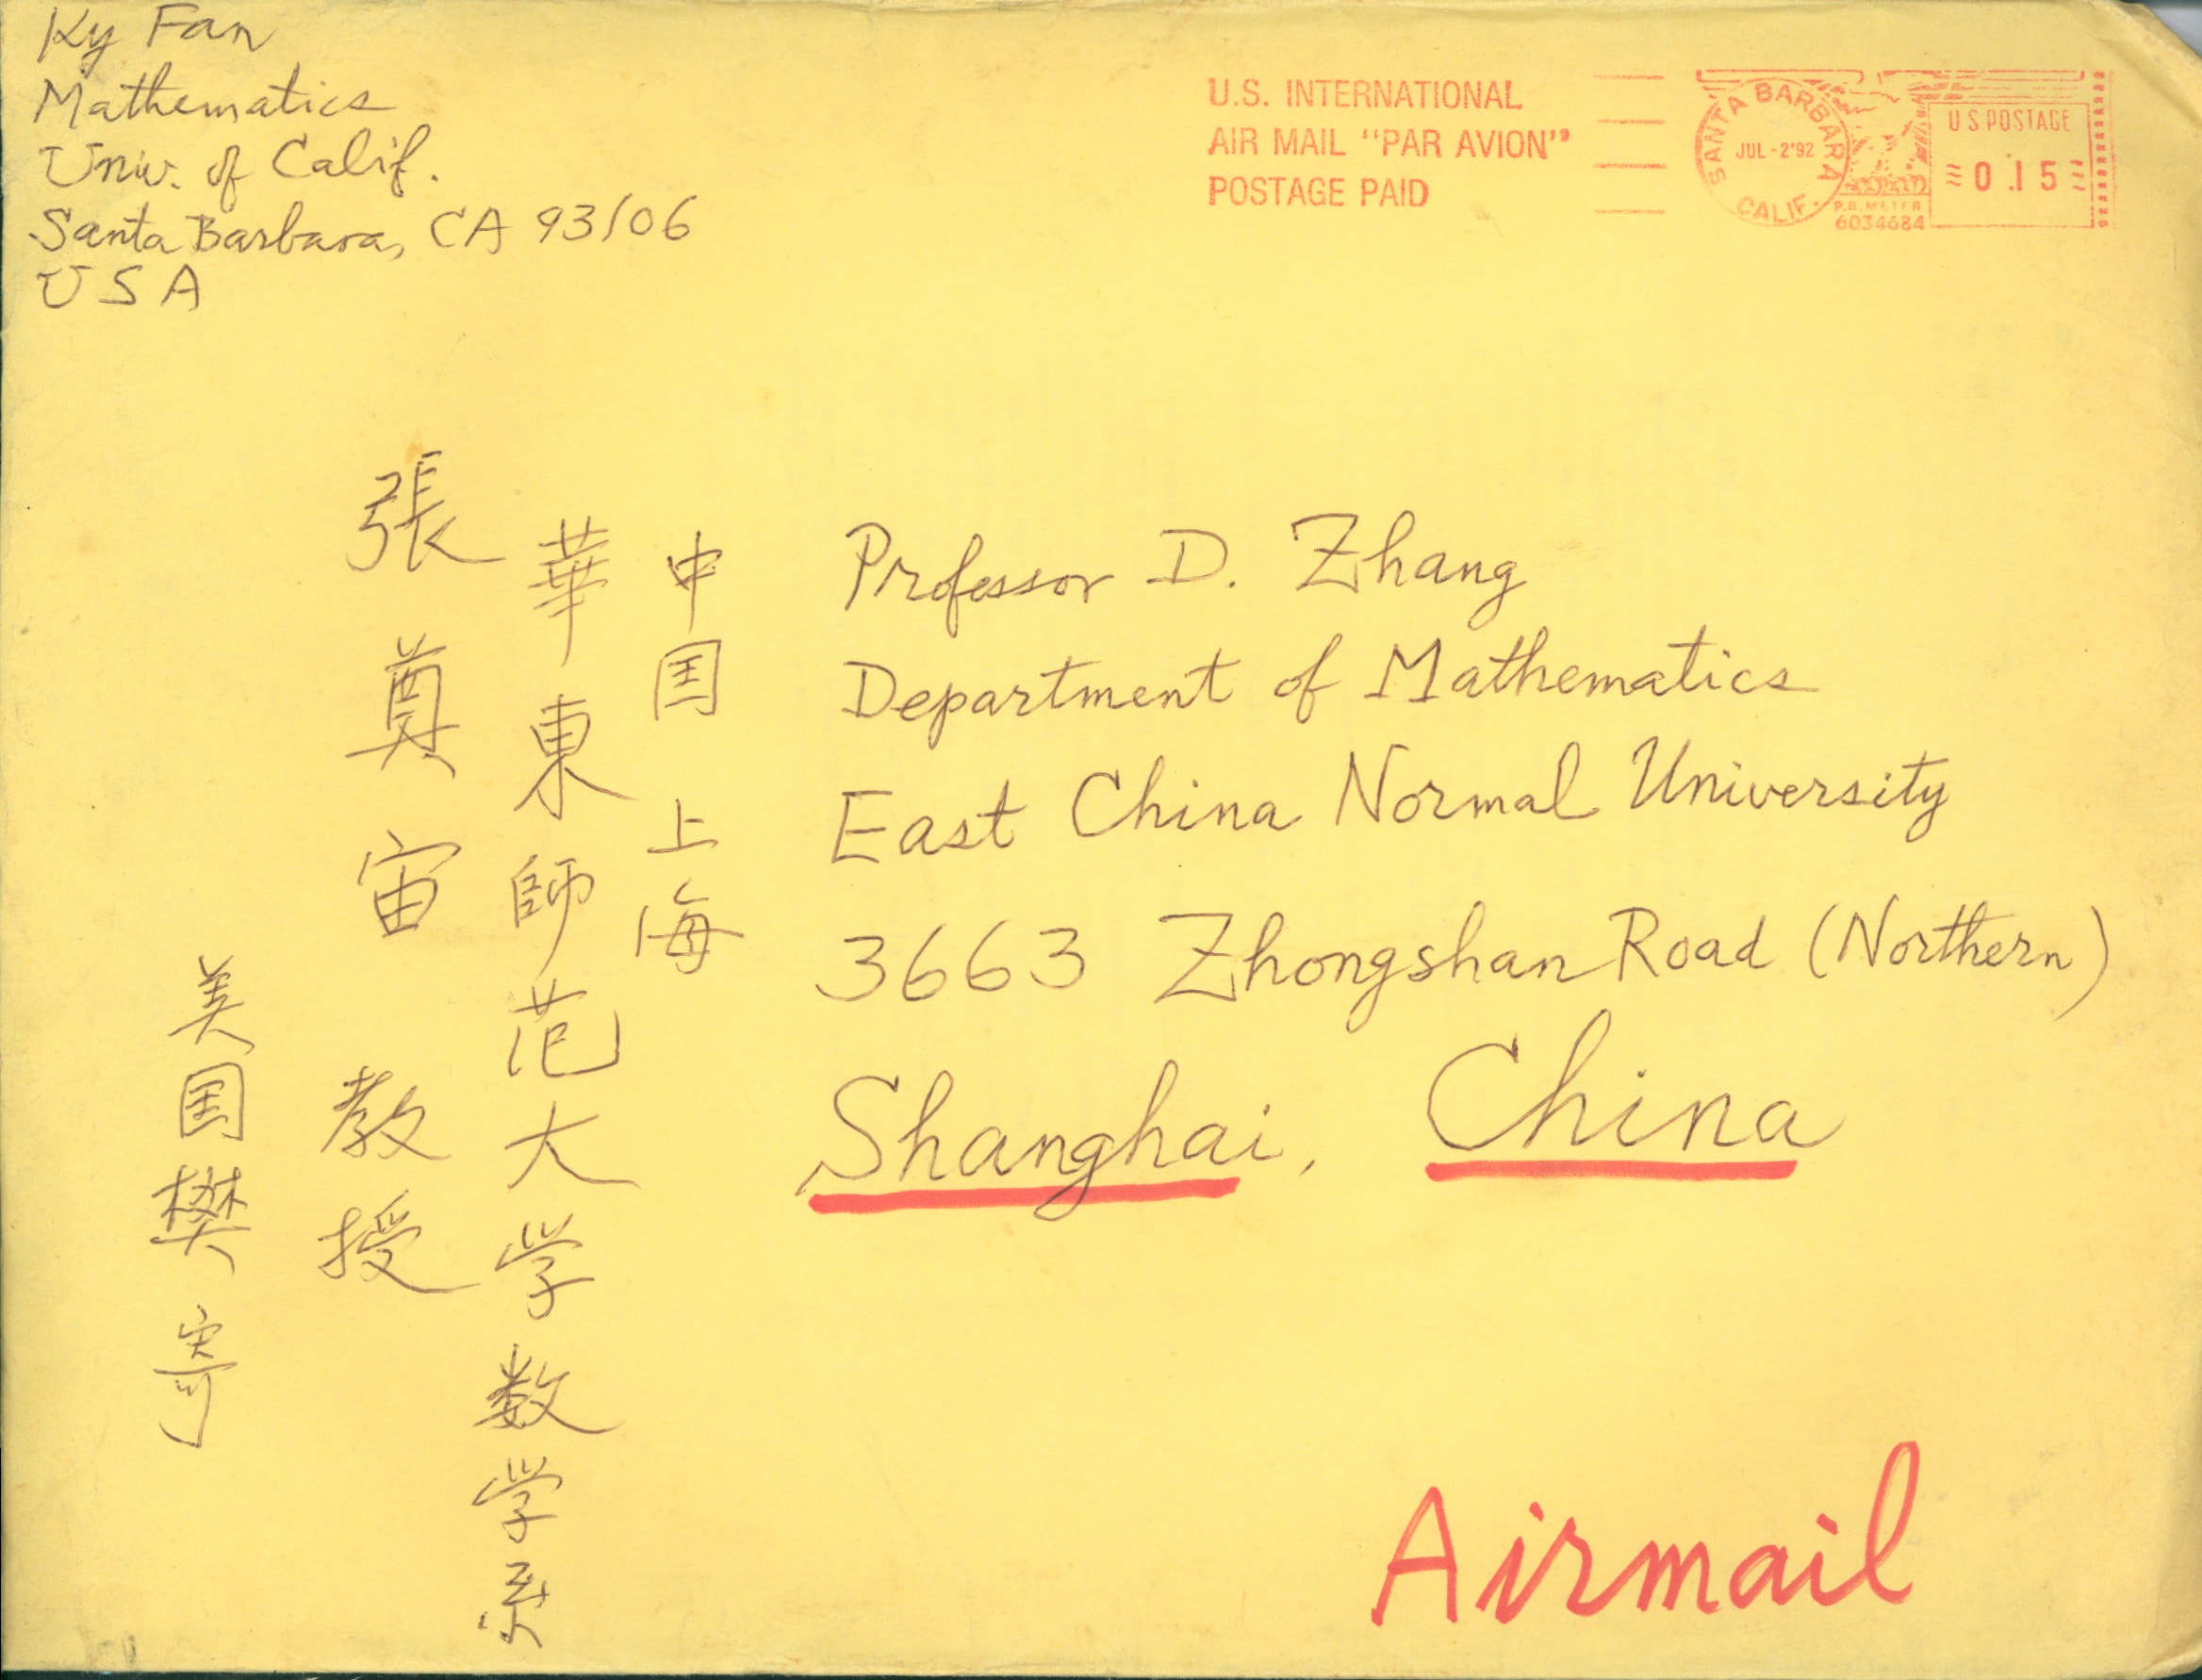 Ky Fan
Mathematics
Univ. of Calif.
Santa Barbara, CA 93106
USA
U.S. INTERNATIONAL
AIR MAIL "PAR AVION"
POSTAGE PAID
SANTA BARBARA
JUL -2'92
CALIF.
P.B. METER
6034684
U.S. POSTAGE
0.15
中国 上海
華東師范大学数学系
張奠宙 教授
美国樊寄
Professor D. Zhang
Department of Mathematics
East China Normal University
3663 Zhongshan Road (Northern)
Shanghai, China
Airmail